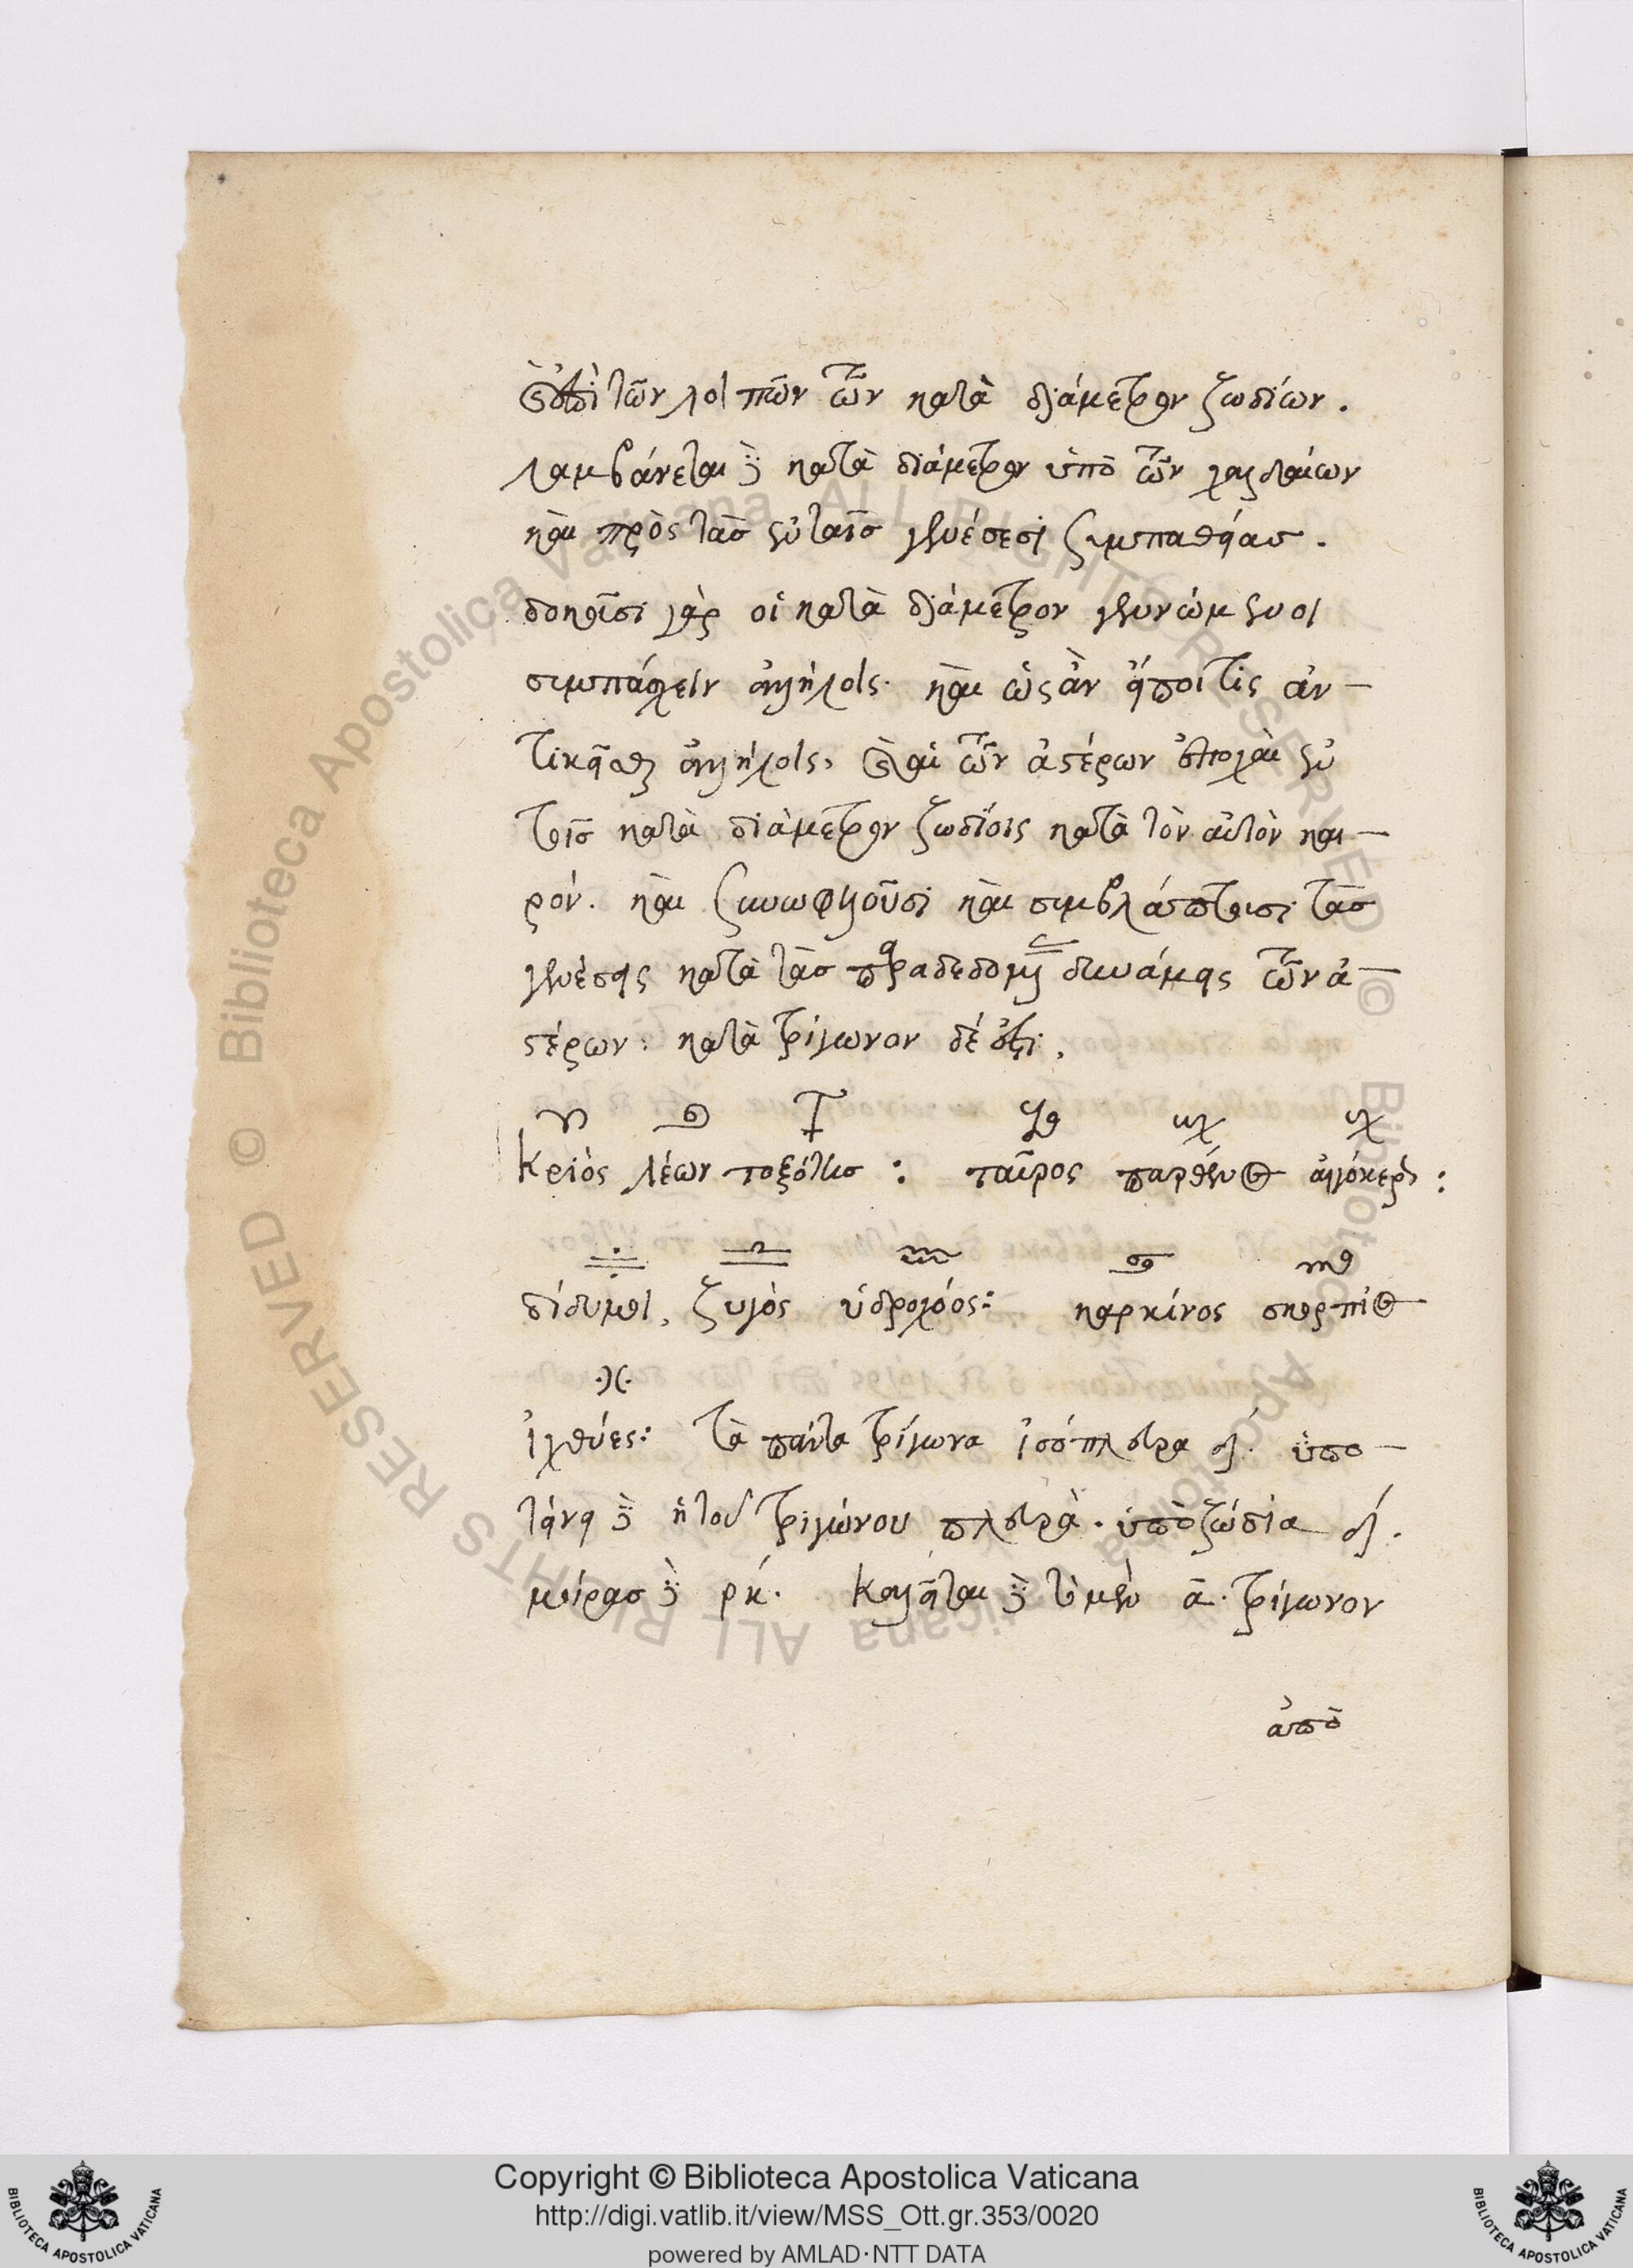 καὶ ἐπὶ τῶν λοιπῶν τῶν κατὰ διάμετρον ζωδίων.
λαμβάνεται δὲ κατὰ διάμετρον ὑπὸ τῶν χαλδαίων
καὶ πρὸς τὰσ ἐν ταῖσ γενέσεσι συμπαθείασ.
δοκοῦσι γὰρ οἱ κατὰ διάμετρον γεννώμενοι
συμπάσχειν ἀλλήλοις. καὶ ὡς ἂν εἴποι τὶς ἀν-
τικεῖσθαι ἀλλήλοις, καὶ αἱ τῶν ἀστέρων ἐποχαὶ ἐν
τοῖσ κατὰ διάμετρον ζωδίοις κατὰ τὸν αὐτὸν και-
ρόν. καὶ συνωφελοῦσι καὶ συμβλάπτουσι τὰσ
γενέσεις κατὰ τὰσ παραδεδομένας δυνάμεις τῶν ἀ-
στέρων: κατὰ τρίγωνον δέ ἐστι,
♈ ♌ ♐ ♉ ♍ ♑
Κριὸς λέων τοξότησ : ταῦρος παρθένος αἰγόκερως :
♊ ♎ ♒ ♋ ♏
δίδυμοι, ζυγὸς ὑδροχόος: καρκίνος σκορπίος
♓
ἰχθύες: τὰ πάντα τρίγωνα ἰσόπλευρα δ. ὑπο-
τείνει δὲ ἡ τοῦ τριγώνου πλευρὰ. ὑπὸ ζώδια δ.
μοίρασ δὲ ρκ. Καλεῖται δὲ τὸ μὲν α. τρίγωνον
ἀπὸ
Copyright © Biblioteca Apostolica Vaticana
http://digi.vatlib.it/view/MSS_Ott.gr.353/0020
powered by AMLAD·NTT DATA
BIBLIOTECA APOSTOLICA VATICANA
BIBLIOTECA APOSTOLICA VATICANA
Biblioteca Apostolica Vaticana ALL RIGHTS RESERVED ©
Biblioteca Apostolica Vaticana ALL RIGHTS RESERVED ©